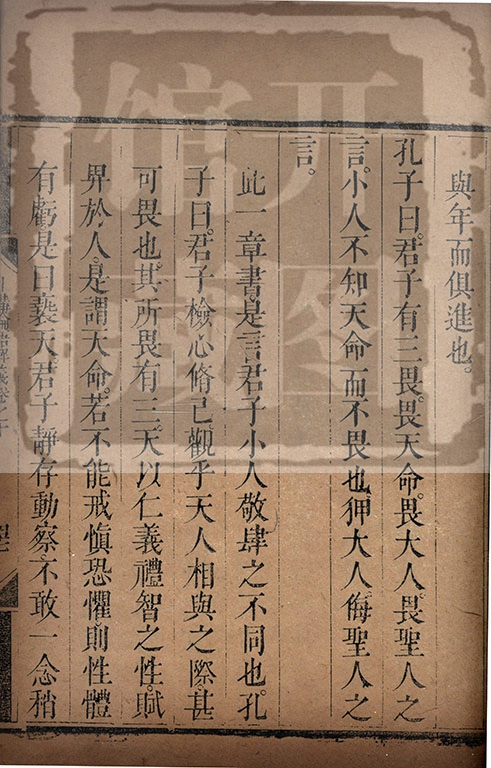 與年而俱進也。
孔子曰。君子有三畏。畏天命。畏大人。畏聖人之
言。小人不知天命而不畏也。狎大人。侮聖人之
言。
此一章書。是言君子小人敬肆之不同也。孔
子曰。君子檢心脩己。觀乎天人相與之際。甚
可畏也。其所畏有三。天以仁義禮智之性。賦
畀於人。是謂天命。若不能戒慎恐懼。則性體
有虧。是曰褻天。君子靜存動察。不敢一念稍